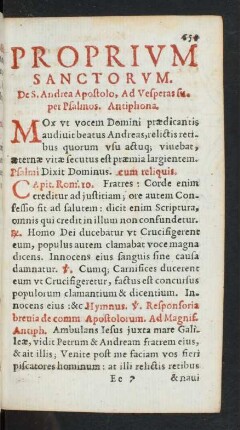 PROPRIVM
SANCTORVM.
De S. Andrea Apostolo, Ad Vesperas su
per Psalmos. Antiphona.
MOx vt vocem Domini prædicantis
audiuit beatus Andreas, relictis reti-
bus quorum vsu actuq; viuebat,
æternæ vitæ secutus est præmia largientem.
Psalmi Dixit Dominus. cum reliquis.
Capit. Rom. 10. Fratres: Corde enim
creditur ad justitiam; ore autem Con-
fessio fit ad salutem: dicit enim Scriptura,
omnis qui credit in illum non confundetur.
℟. Homo Dei ducebatur vt Crucifigerent
eum, populus autem clamabat voce magna
dicens. Innocens eius sanguis sine causa
damnatur. ℣. Cumq; Carnifices ducerent
eum vt Crucifigeretur, factus est concursus
populorum clamantium & dicentium. In-
nocens eius :&c Hymnus. ℣. Responsoria
breuia de comm Apostolorum. Ad Magnif.
Antiph. Ambulans Iesus juxta mare Gali-
leæ, vidit Petrum & Andream fratrem eius,
& ait illis; Venite post me faciam vos fieri
piscatores hominum: at illi relictis retibus
Ee & naui